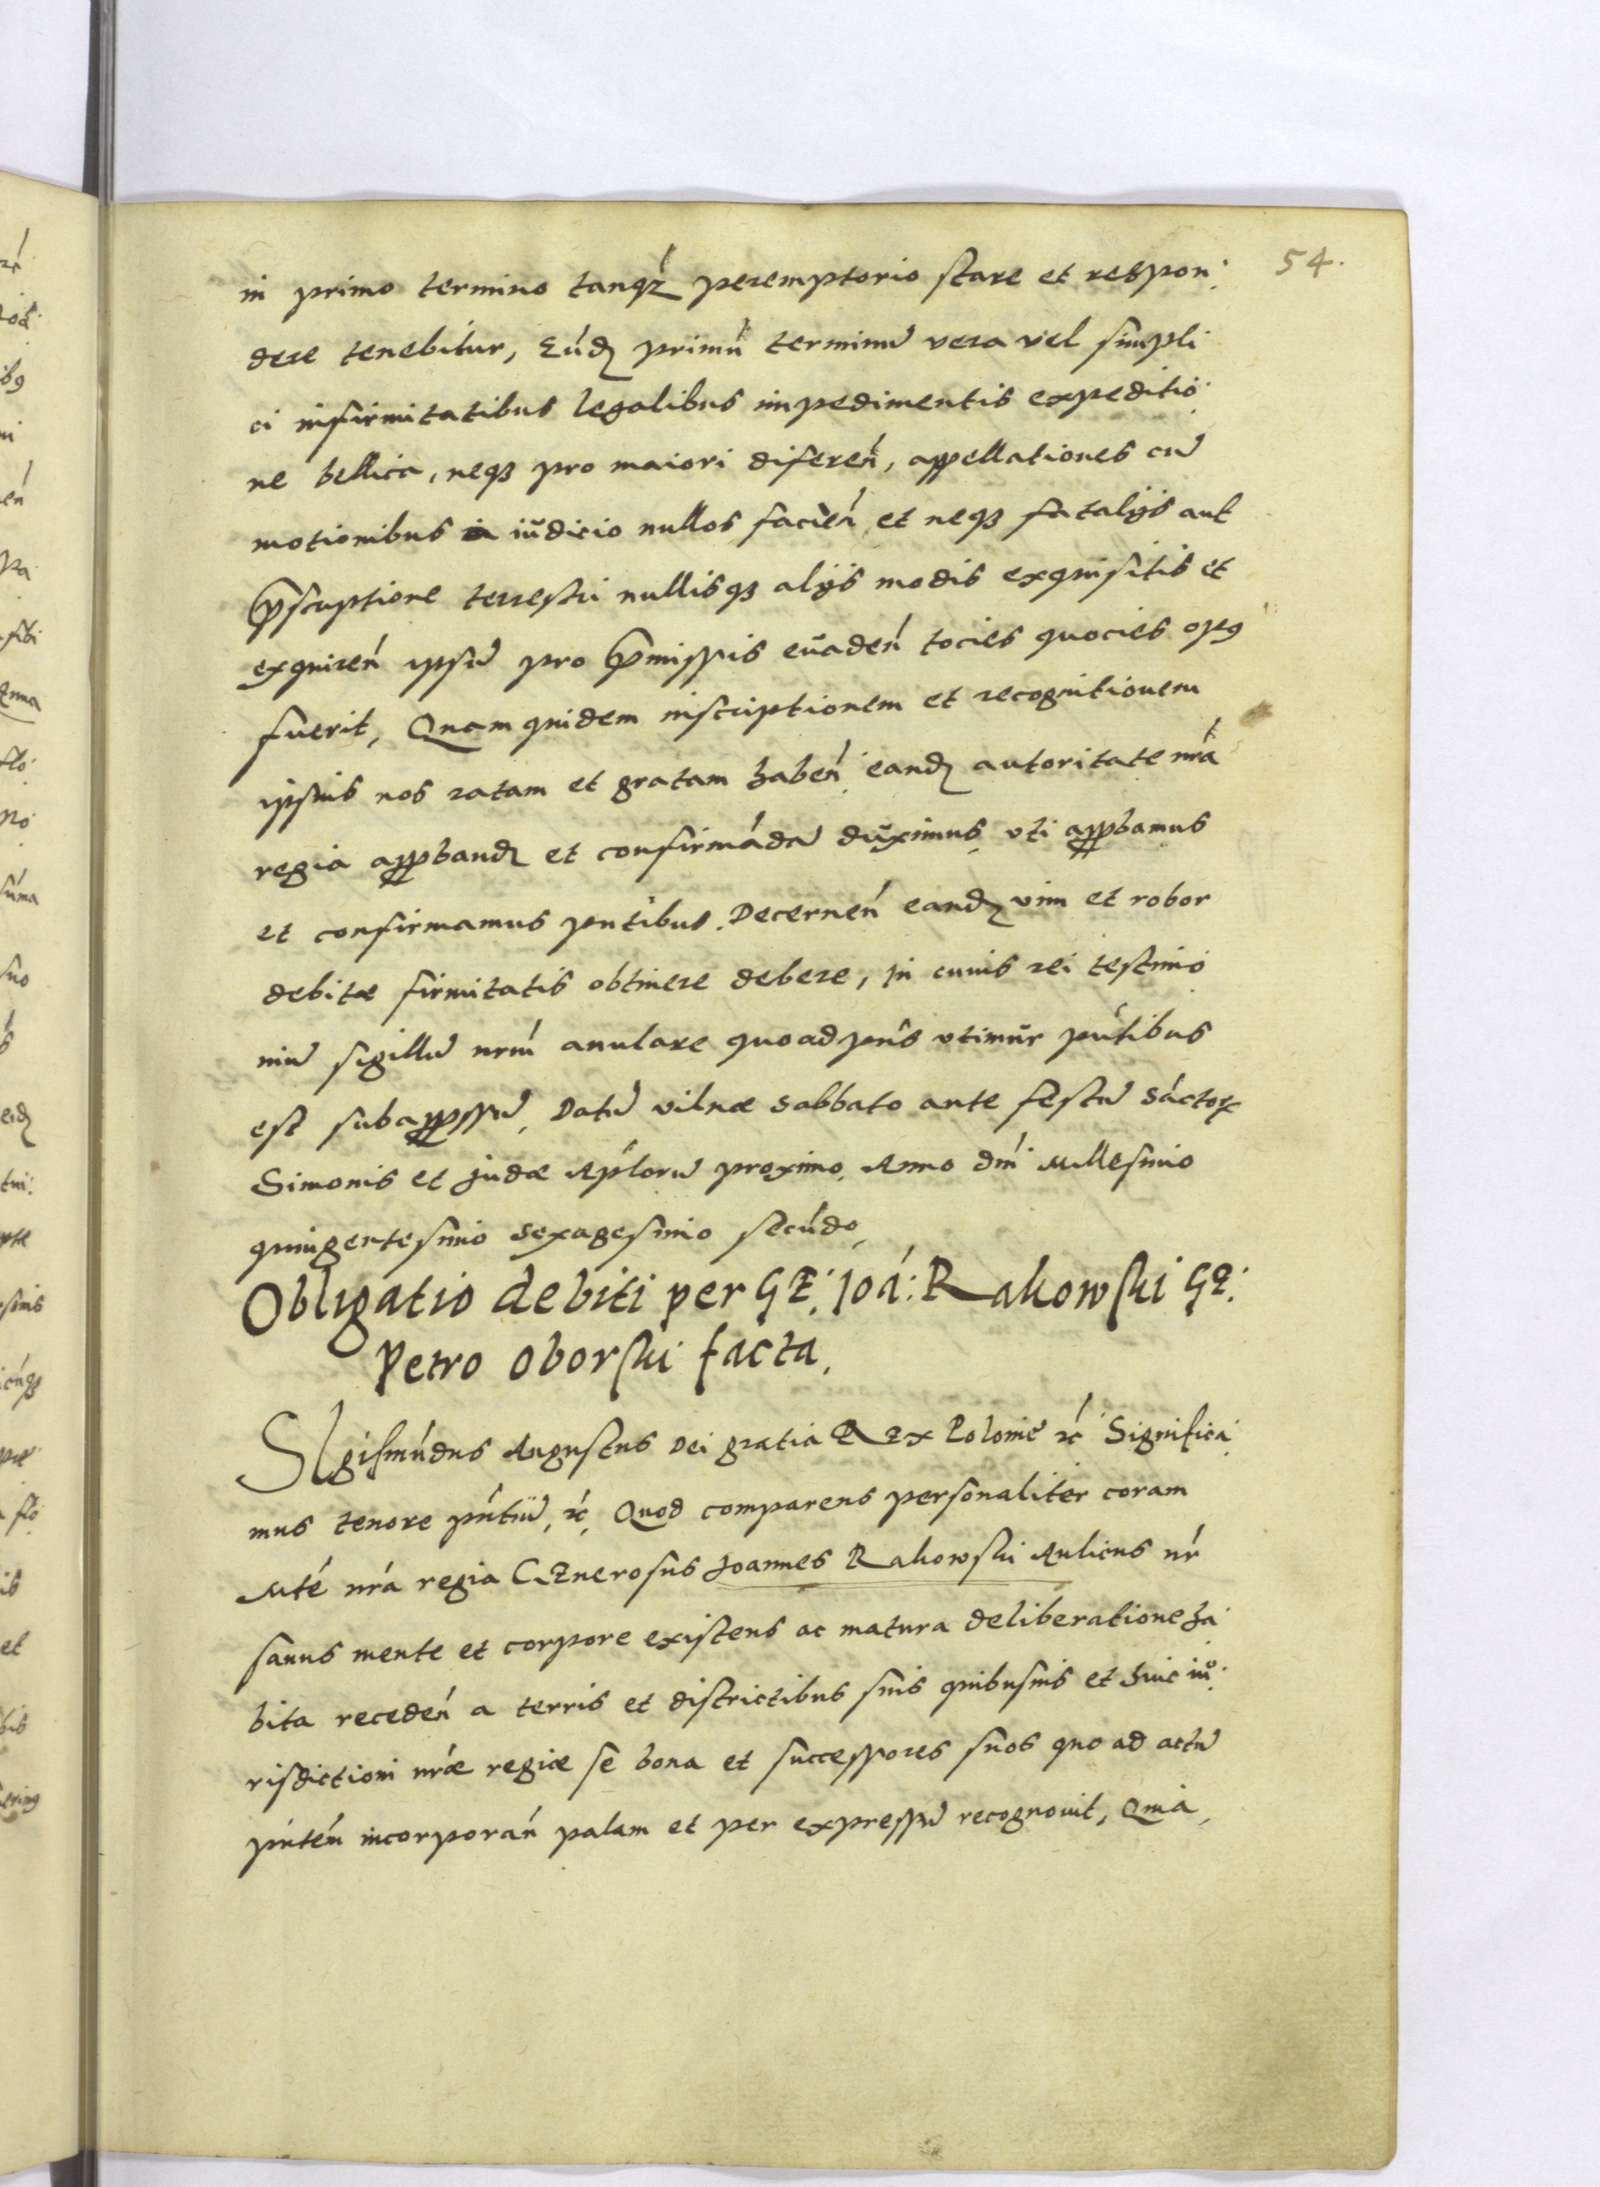 54.
in primo termino tanqȝ peremptorio stare et respon:
dere tenebitur, Eúdȝ primũ terminũ vera vel simpli
ci infirmitatibus legalibus impedimentis expeditio:
ne bellica, neqȝ pro maiori difereń, appellationes cũ
motionibus a iũdicio nullos facień et neqȝ fatalijs aut
p̃scriptione terrestri nullisqȝ alijs modis exquisitis et
exquireń ipsũ pro p̃missis eũadeń tocies quocies opꝯ
fuerit, Quam quidem inscriptionem et recognitionem
ipsius nos ratam et gratam habeń eandȝ autoritate nr̃a
regia app̃bandȝ et confirmádã dũximus, vti app̃bamus
et confirmamus pñtibus. Decerneń eandȝ vim et robor
debitæ firmitatis obtinere debere, In cuius rei testimo
niũ sigillũ nrḿ anulare quoad pñs vtimũr pńtibus
est subapp̃ssũ, Datũ vilnæ sabbato ante festũ Sáctorꝝ
Simonis et Judæ Apĺorũ proximo, Anno dńi Millesimo
quingentesimo sexagesimo secúdo,
Obligatio debiti per GE: Joá: Rakowski GE:
Petro Oborski facta,
SIgismúdus Augustus Dei gratia REx Polonie ꝛć Significa:
mus tenore pńtiũ, ꝛć, Quod comparens personaliter coram
Mté nrá regia GEnerosus Joannes Rakowski Aulicus nŕ
sanus mente et corpore existens ac matura deliberatione ha:
bita recedeń a terris et districtibus suis quibusuis et huic iũ:
risdictioni nráe regiæ se bona et successores suos quo ad actũ
pńtén incorporán palam et per expressũ recognouit, Quia,